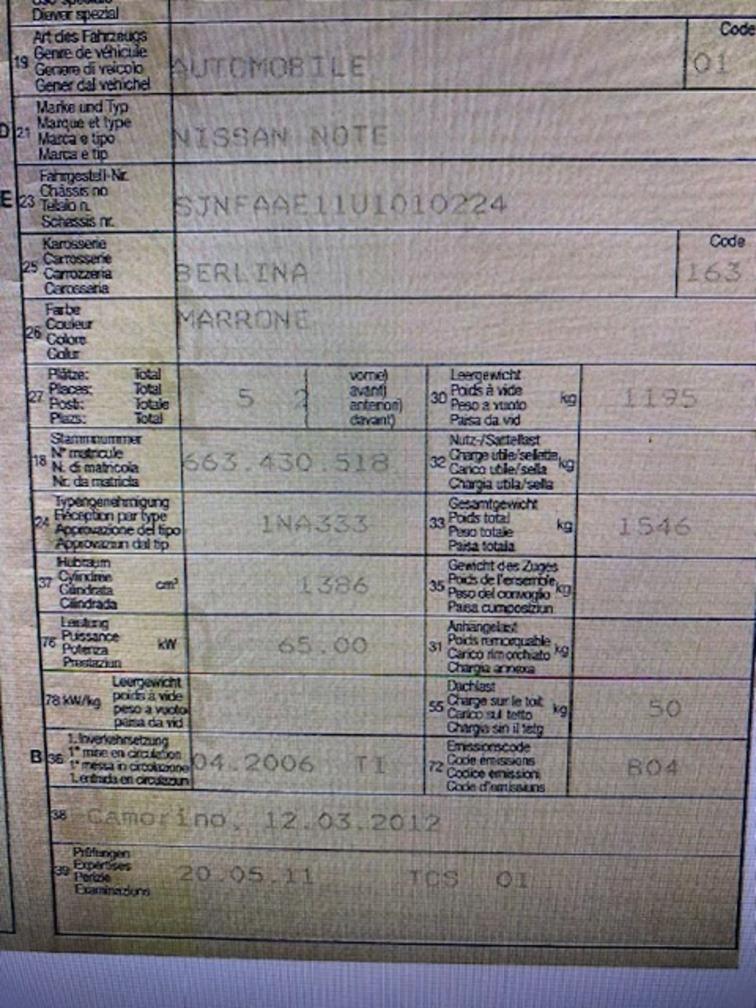 Diever spezial
19 Art des Fahrzeugs
Genre de véhicule
Genere di veicolo
Gener dal vehichel
AUTOMOBILE
Code
01
D 21 Marke und Typ
Marque et type
Marca e tipo
Marca e tip
NISSAN NOTE
E 23 Fahrgestell-Nr.
Châssis no
Telaio n.
Schassis nr.
SJNFAAE11U1010224
25 Karosserie
Carrosserie
Carrozzeria
Carossaria
BERLINA
Code
163
26 Farbe
Couleur
Colore
Colur
MARRONE
27 Plätze: Total
Places: Total
Posti: Totale
Plazs: Total
5 2
vorne)
avant)
anteriori)
davant)
30 Leergewicht
Poids à vide
Peso a vuoto
Paisa da vid
kg
1195
18 Stammnummer
N° matricule
N. di matricola
Nr. da matricla
663.430.518
32 Nutz-/Sattellast
Charge utile/sellette
Carico utile/sella
Chargia utila/sella
kg
24 Typengenehmigung
Réception par type
Approvazione del tipo
Approvaziun dal tip
1NA333
33 Gesamtgewicht
Poids total
Peso totale
Paisa totala
kg
1546
37 Hubraum
Cylindrée
Cilindrata
Cilindrada
cm³
1386
35 Gewicht des Zuges
Poids de l'ensemble
Peso del convoglio
Paisa cumposiziun
kg
76 Leistung
Puissance
Potenza
Prestaziun
kW
65.00
31 Anhängelast
Poids remorquable
Carico rimorchiato
Chargia annexa
kg
78 kW/kg
Leergewicht
poids à vide
peso a vuoto
paisa da vid
55 Dachlast
Charge sur le toit
Carico sul tetto
Chargia sin il tetg
kg
50
B 36 1. Inverkehrsetzung
1re mise en circulation
1a messa in circolazione
1. entrada en circulaziun
04.2006 TI
72 Emissionscode
Code émissions
Codice emissioni
Code d'emissiuns
B04
38 Camorino, 12.03.2012
39 Prüfungen
Expertises
Perizie
Examinaziuns
20.05.11 TCS 01